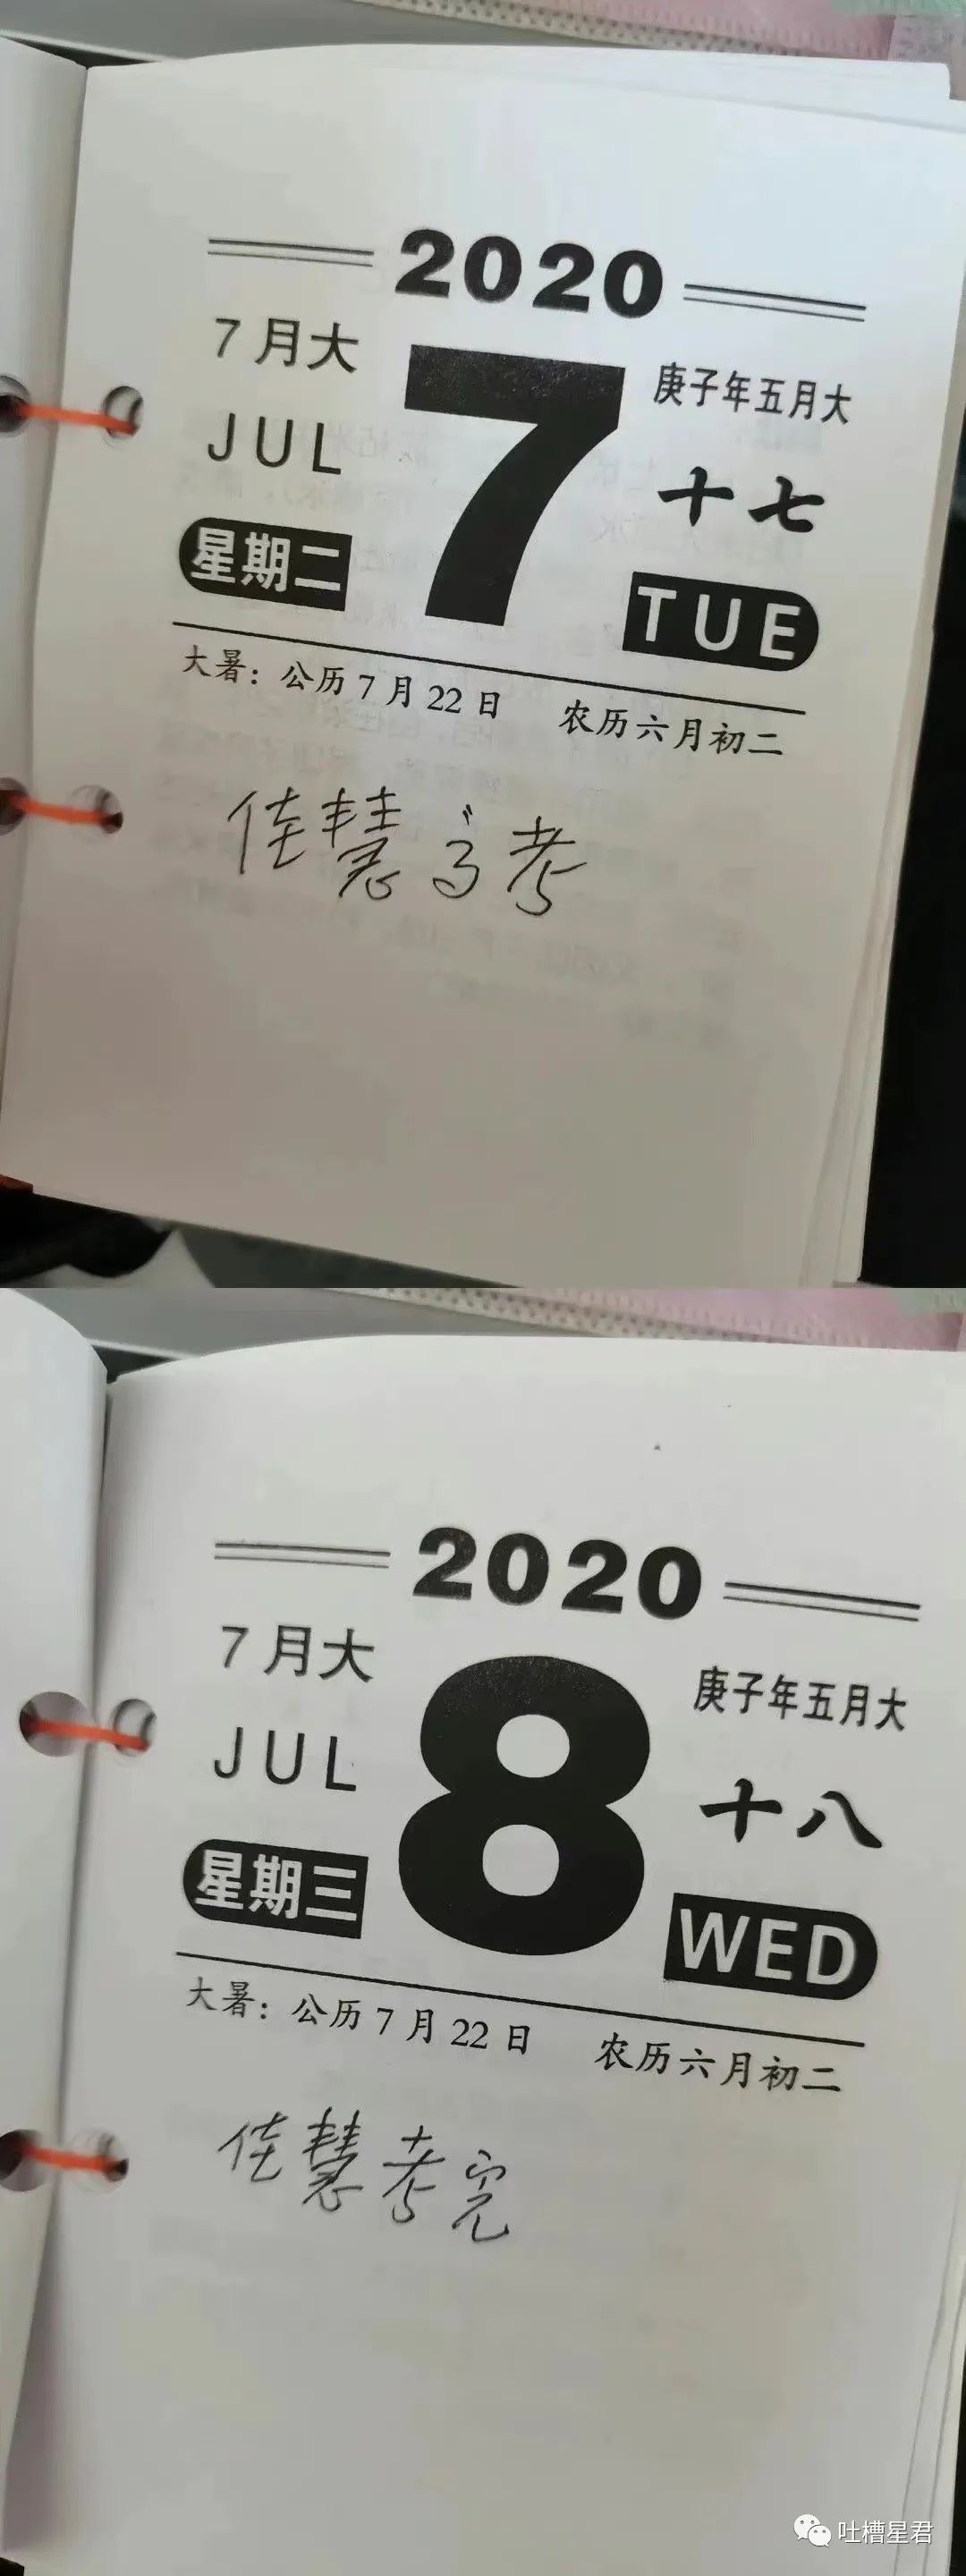 2020
7月大
庚子年五月大
7
JUL
十七
星期二
TUE
大暑：公历7月22日 农历六月初二
佳慧高考
2020
7月大
庚子年五月大
8
JUL
十八
星期三
WED
大暑：公历7月22日 农历六月初二
佳慧考完
吐槽星君